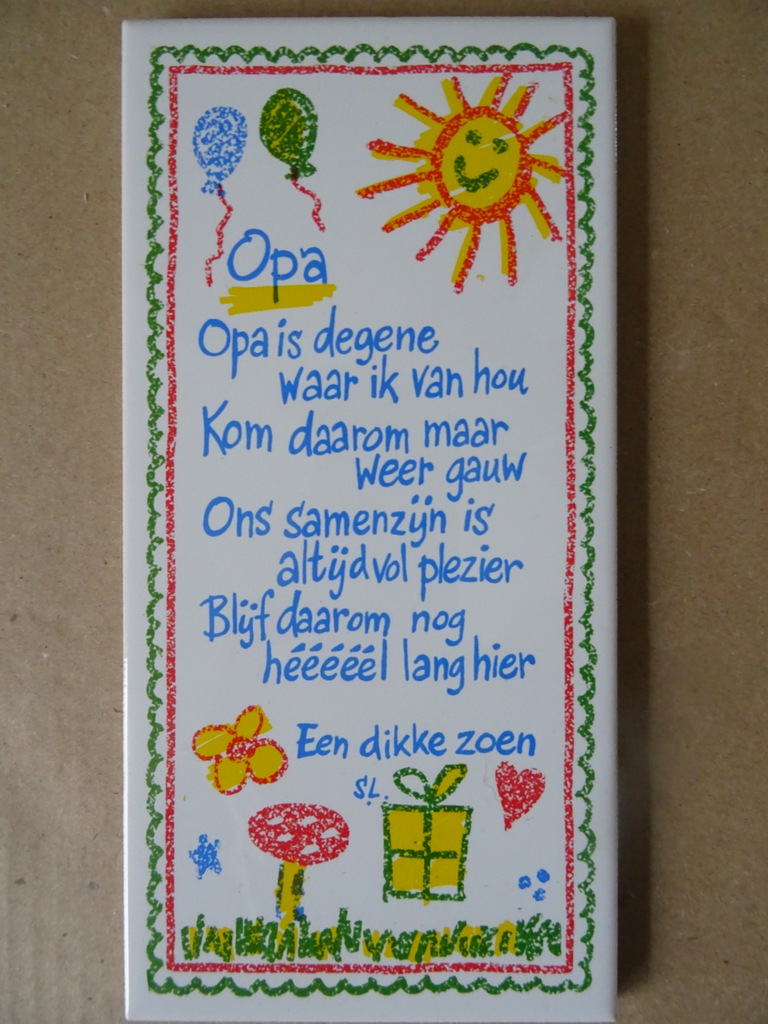 Opa
Opa is degene
waar ik van hou
Kom daarom maar
weer gauw
Ons samenzijn is
altijd vol plezier
Blijf daarom nog
hééééél lang hier
Een dikke zoen
S.L.